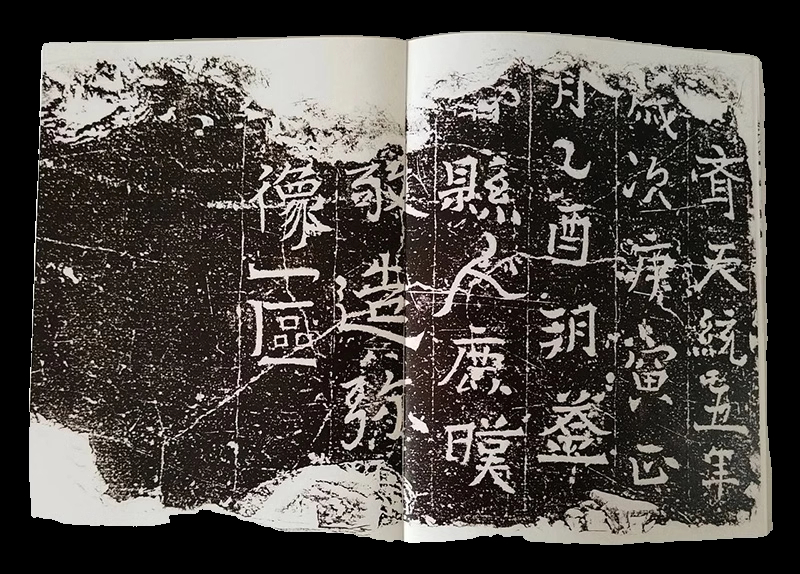 齊天統五年
歲次庚寅正
月乙酉朔釜
部縣人廣暵
敬造弥
像一區